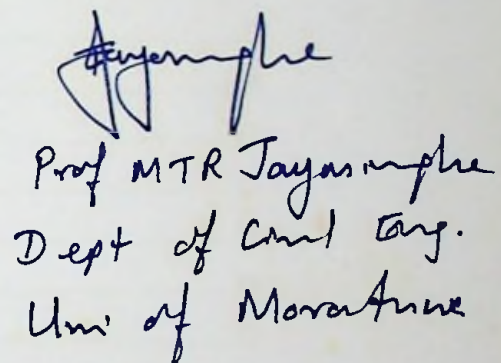 Jayasinghe
Prof MTR Jayasinghe
Dept of Civil Eng.
Uni of Moratuwa